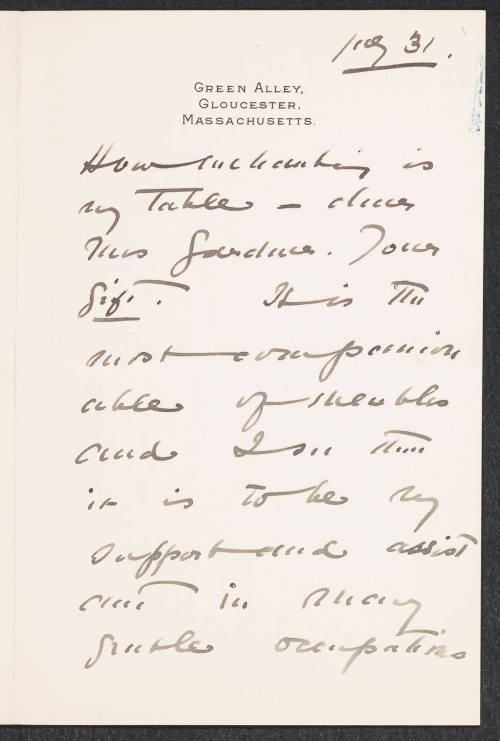 July 31.
GREEN ALLEY,
GLOUCESTER,
MASSACHUSETTS.
How enchanting is
my Table – dear
Mrs Gardner. Your
Gift. It is the
most companion
able of meubles
and I see that
it is to be my
support and assist
ant in many
gentle occupations